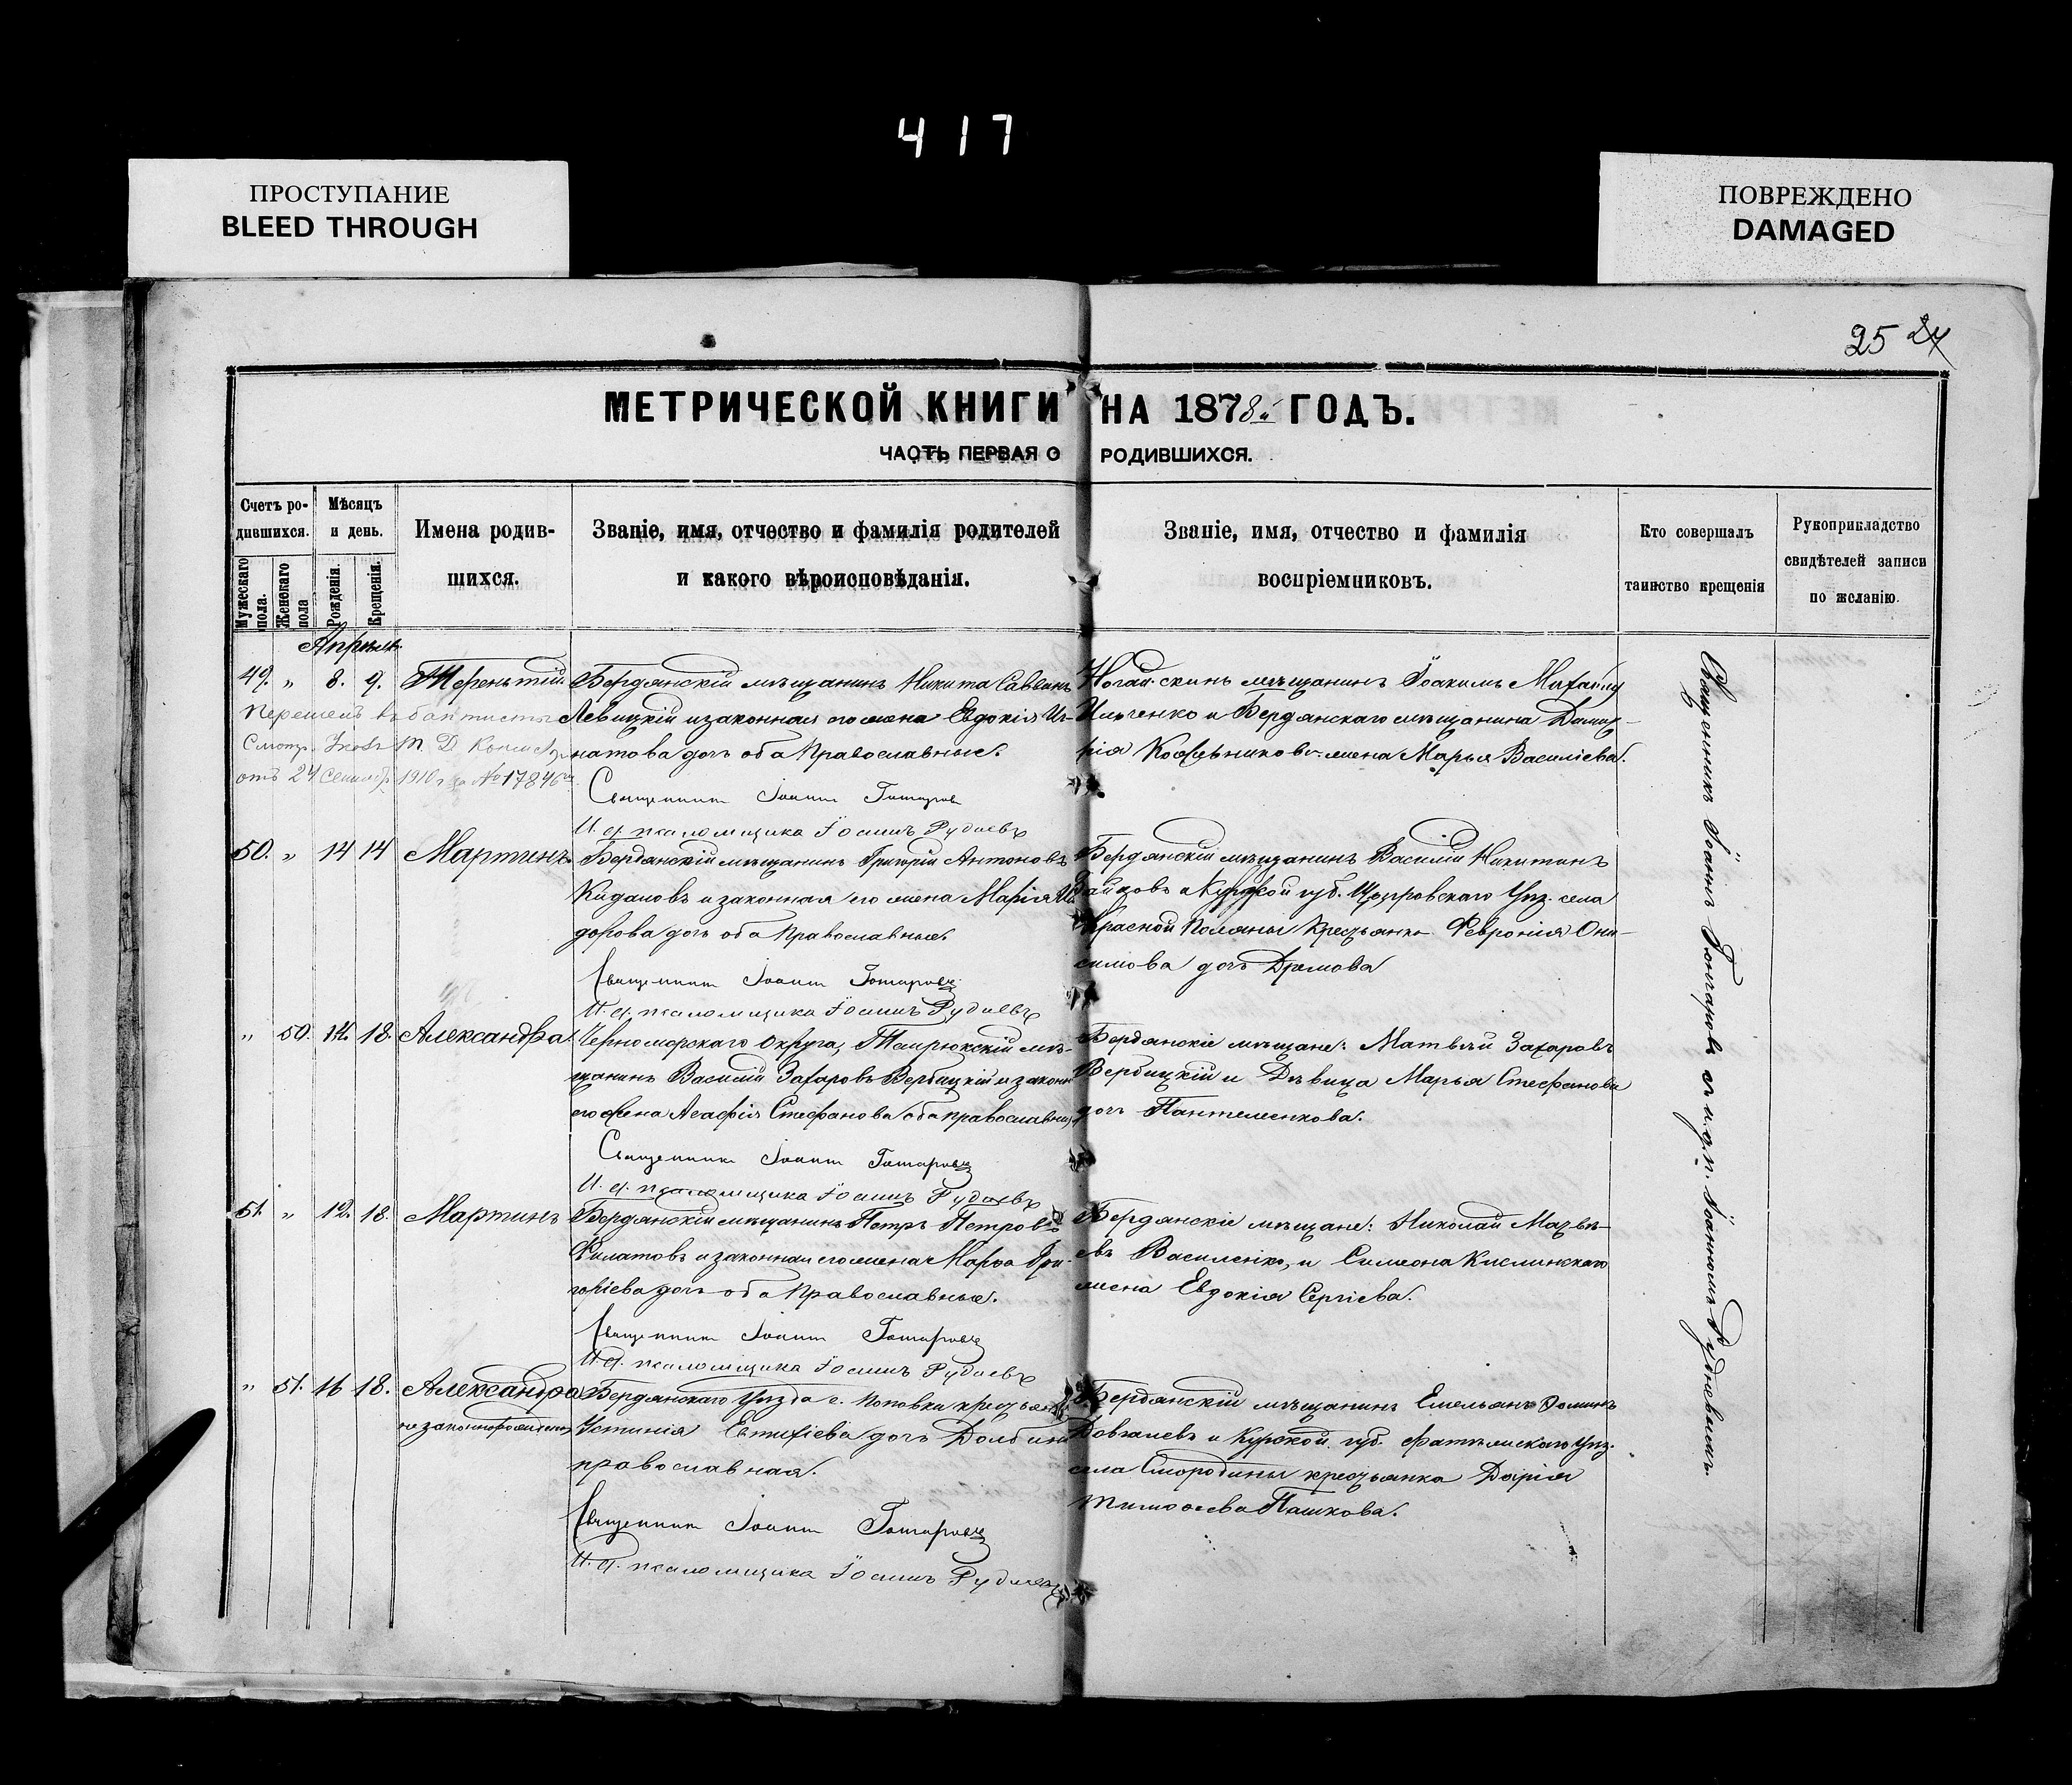 417
ПРОСТУПАНИЕ
BLEED THROUGH
ПОВРЕЖДЕНО
DAMAGED
25 24
МЕТРИЧЕСКОЙ КНИГИ НА 1878й ГОДЪ.
ЧАСТЬ ПЕРВАЯ О РОДИВШИХСЯ.
Счетъ ро-
дившихся.
Мужескаго пола.
Женскаго пола
Мѣсяцъ
и день.
Рожденія.
Крещенія.
Имена родив-
шихся.
Званіе, имя, отчество и фамилія родителей
и какого вѣроисповѣданія.
Званіе, имя, отчество и фамилія
воспріемниковъ.
Кто совершалъ
таинство крещенія
Рукоприкладство
свидѣтелей записи
по желанію.
Апрель
49. " 8. 9. Терентій
перешелъ въ баптисты
отъ 24 Сентябр. 1910 г за № 17846
Бердянскій мѣщанинъ Никита Саввинъ
Левицкій и законная его жена Евдокія Иг-
натова дочь оба Православные.
Священникъ Іоаннъ Гончаровъ
И. д. псаломщика Іоаннъ Рудневъ
мѣщанинъ Іоакимъ
Ильченко и Бердянскаго мѣщанина Димит-
рія жена Марья Василіева.
50. " 14 14 Мартинъ
Бердянскій мѣщанинъ Григорій Антоновъ
Кидаловъ и законная его жена Марія Иси-
дорова дочь оба Православные.
Священникъ Іоаннъ Гончаровъ
И. д. псаломщика Іоаннъ Рудневъ
Бердянскій мѣщанинъ Василій Никитинъ
и Курской губ. Щигровскаго Уѣз. села
Красной Поляны Крестьянка Февронія Они-
симова дочь Дремова
" 50. 14. 18. Александра
Черноморскаго Округа, Темрюкскій мѣ-
щанинъ Василій Захаровъ Вербицкій и законн
его жена Агафія Стефанова оба православны
Священникъ Іоаннъ Гончаровъ
И. д. псаломщика Іоаннъ Рудневъ
Бердянскіе мѣщане: Матвѣй Захаровъ
Вербицкій и Дѣвица Марья Стефанова
дочь Пантелеенкова.
51. " 12. 18. Мартинъ
Бердянскій мѣщанинъ Петръ Петровъ
Филатовъ и законная его жена Марфа Гри-
горіева дочь оба Православные.
Священникъ Іоаннъ Гончаровъ
И. д. псаломщика Іоаннъ Рудневъ
Бердянскіе мѣщане: Николай Матвѣ-
евъ Василенко, и Симеона Кислинскаго
жена Евдокія Сергіева.
" 51. 16 18. Александра
незаконнорожденная
Бердянскаго Уѣзда с. Поповки крестьянка
Устинія Евтихіева дочь
православная.
Священникъ Іоаннъ Гончаровъ
И. д. псаломщика Іоаннъ Рудневъ
Бердянскій мѣщанинъ Емельянъ Фоминъ
Довгалевъ и Курской губ. Фатежскаго Уѣз.
села Смородины крестьянка Дарія
Тимофеева Пашкова.
Священникъ Іоаннъ Гончаровъ съ и. д. п. Іоанномъ Рудневымъ.